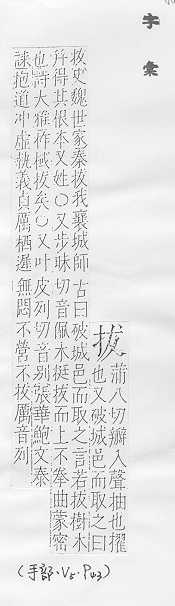 字彙
拔
蒲八切瓣入聲抽也擢
也又破城邑而取之曰
拔史魏世家秦拔我襄城師古曰破城邑而取之言若拔樹木
幷得其根本又姓○又步昧切音佩木挺拔而上不拳曲蒙密
也詩大雅柞棫拔矣○又叶皮列切音別張華鮑文泰
誄抱道冲虛執義貞厲栖遲無悶不營不拔厲音列
(手部·V5·P43)